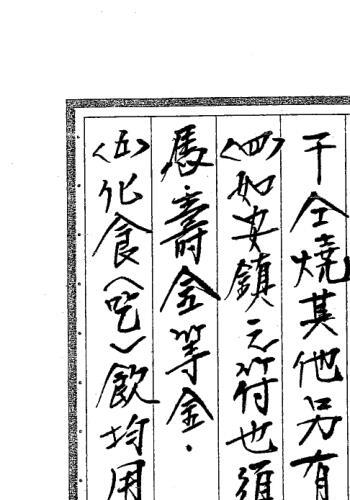 干仝燒其他另有
<四>如安鎮之符也須
馬壽金等金.
<五>化食(吃)飲均用